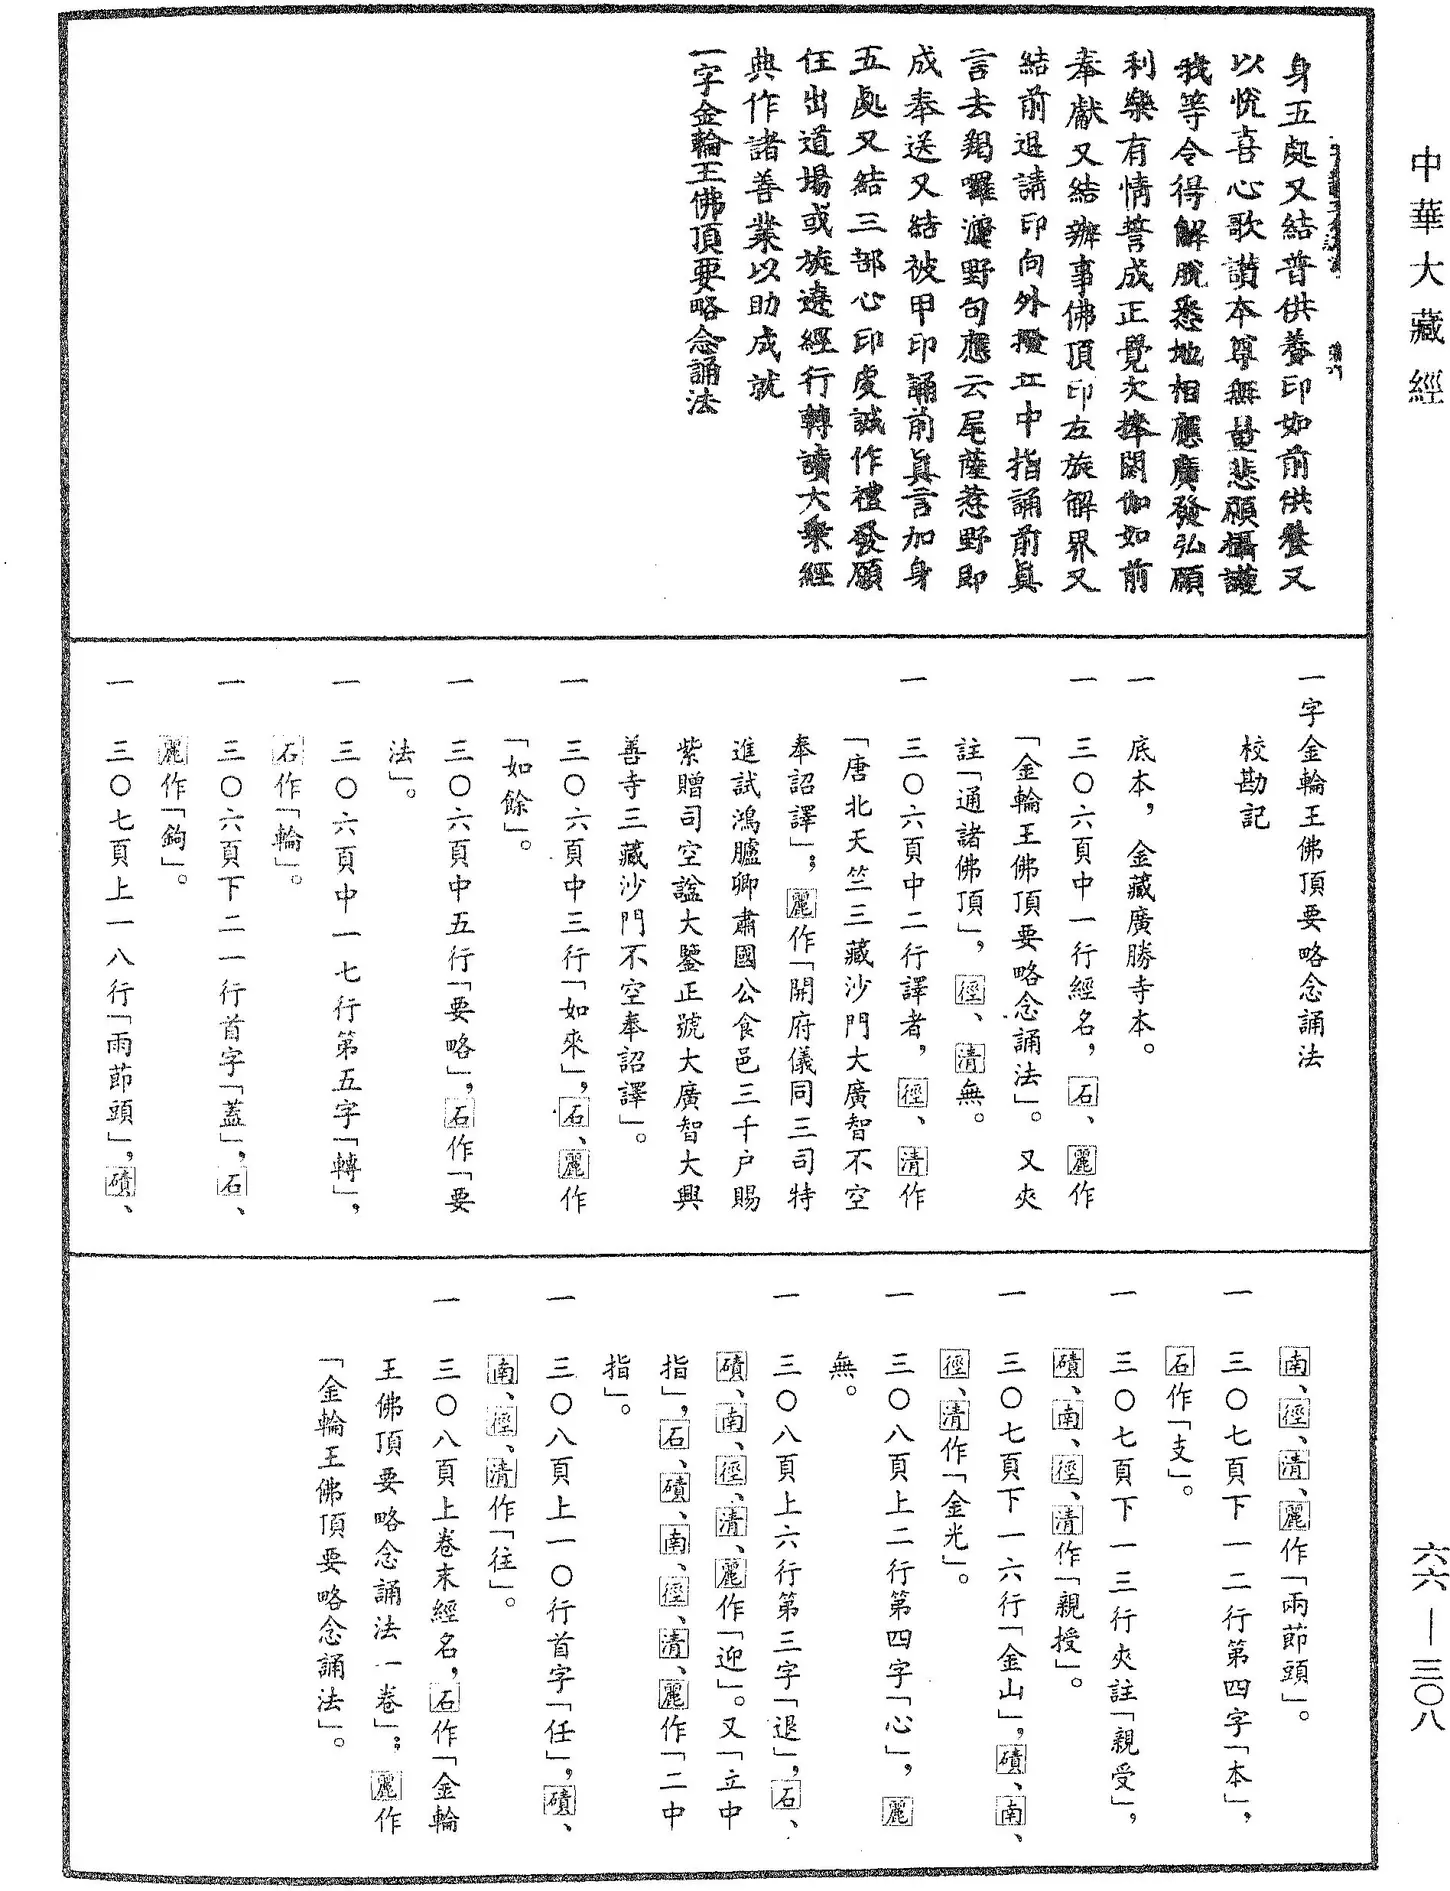 中華大藏經
身五處又結普供養印如前供養又
以悅喜心歌讚本尊無量悲願攝護
我等令得解脫悉地相應廣發弘願
利樂有情誓成正覺次捧閼伽如前
奉獻又結辦事佛頂印左旋解界又
結前退請印向外撥立中指誦前真
言去羯囉灑野句應云尾薩惹野即
成奉送又結被甲印誦前真言加身
五處又結三部心印虔誠作禮發願
任出道場或旋遶經行轉讀大乘經
典作諸善業以助成就
一字金輪王佛頂要略念誦法
一字金輪王佛頂要略念誦法
校勘記
一　底本，金藏廣勝寺本。
一　三〇六頁中一行經名，石、麗作
「金輪王佛頂要略念誦法」。又夾
註「通諸佛頂」，徑、清無。
一　三〇六頁中二行譯者，徑、清作
「唐北天竺三藏沙門大廣智不空
奉詔譯」；麗作「開府儀同三司特
進試鴻臚卿肅國公食邑三千戶賜
紫贈司空諡大鑒正號大廣智大興
善寺三藏沙門不空奉詔譯」。
一　三〇六頁中三行「如來」，石、麗作
「如餘」。
一　三〇六頁中五行「要略」，石作「要
法」。
一　三〇六頁中一七行第五字「轉」，
石作「輪」。
一　三〇六頁下二一行首字「蓋」，石、
麗作「鉤」。
一　三〇七頁上一八行「雨節頭」，磧、
南、徑、清、麗作「兩節頭」。
一　三〇七頁下一二行第四字「本」，
石作「支」。
一　三〇七頁下一三行夾註「親受」，
磧、南、徑、清作「親授」。
一　三〇七頁下一六行「金山」，磧、南、
徑、清作「金光」。
一　三〇八頁上二行第四字「心」，麗
無。
一　三〇八頁上六行第三字「退」，石、
磧、南、徑、清、麗作「迎」。又「立中
指」，石、磧、南、徑、清、麗作「二中
指」。
一　三〇八頁上一〇行首字「任」，磧、
南、徑、清作「往」。
一　三〇八頁上卷末經名，石作「金輪
王佛頂要略念誦法一卷」；麗作
「金輪王佛頂要略念誦法」。
六六—三〇八